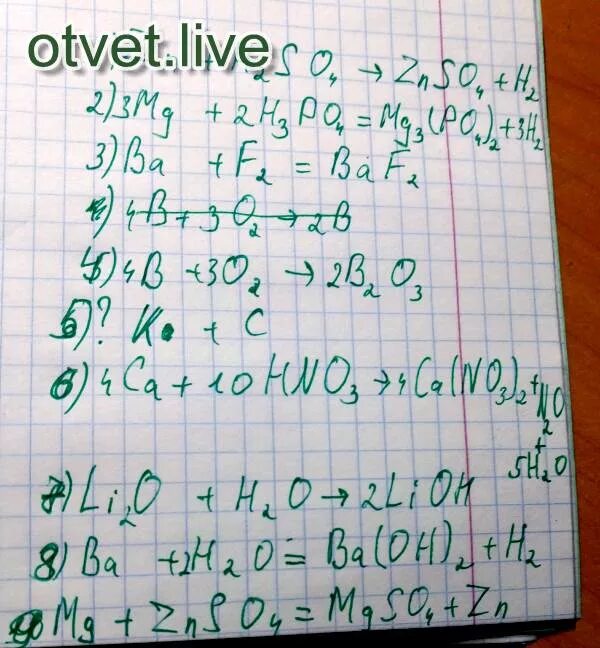 otvet.live
2SO4 → ZnSO4 + H2
2) 3Mg + 2H3PO4 = Mg3(PO4)2 + 3H2
3) Ba + F2 = BaF2
4) 4B + 3O2 → 2B
4) 4B + 3O2 → 2B2O3
5)? K + C
6) 4Ca + 10HNO3 → 4Ca(NO3)2 + N2O + 5H2O
7) Li2O + H2O → 2LiOH
8) Ba + 2H2O = Ba(OH)2 + H2
9) Mg + ZnSO4 = MgSO4 + Zn